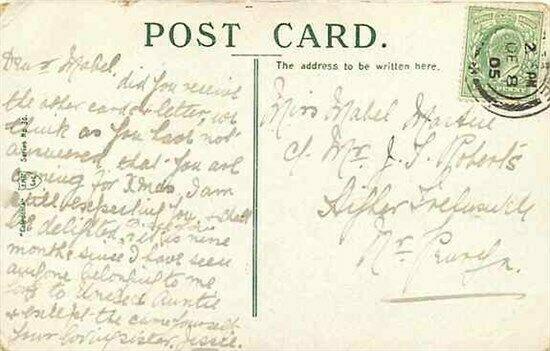 POST CARD.
The address to be written here.
Dear Mabel,
did you receive
the other card or letter, we
think as you have not
answered that you are
coming for Xmas, I am
still expecting you, & shall
be delighted, it is nine
months since I have seen
anyone belonging to me
love to Uncle & Auntie
& except the same yourself
Your loving sister, Jessie.
Miss Mabel
c/o Mr. J. S. Roberts
Higher
Nr. Penryn
Series No. 30.
2 PM
DE 8
05